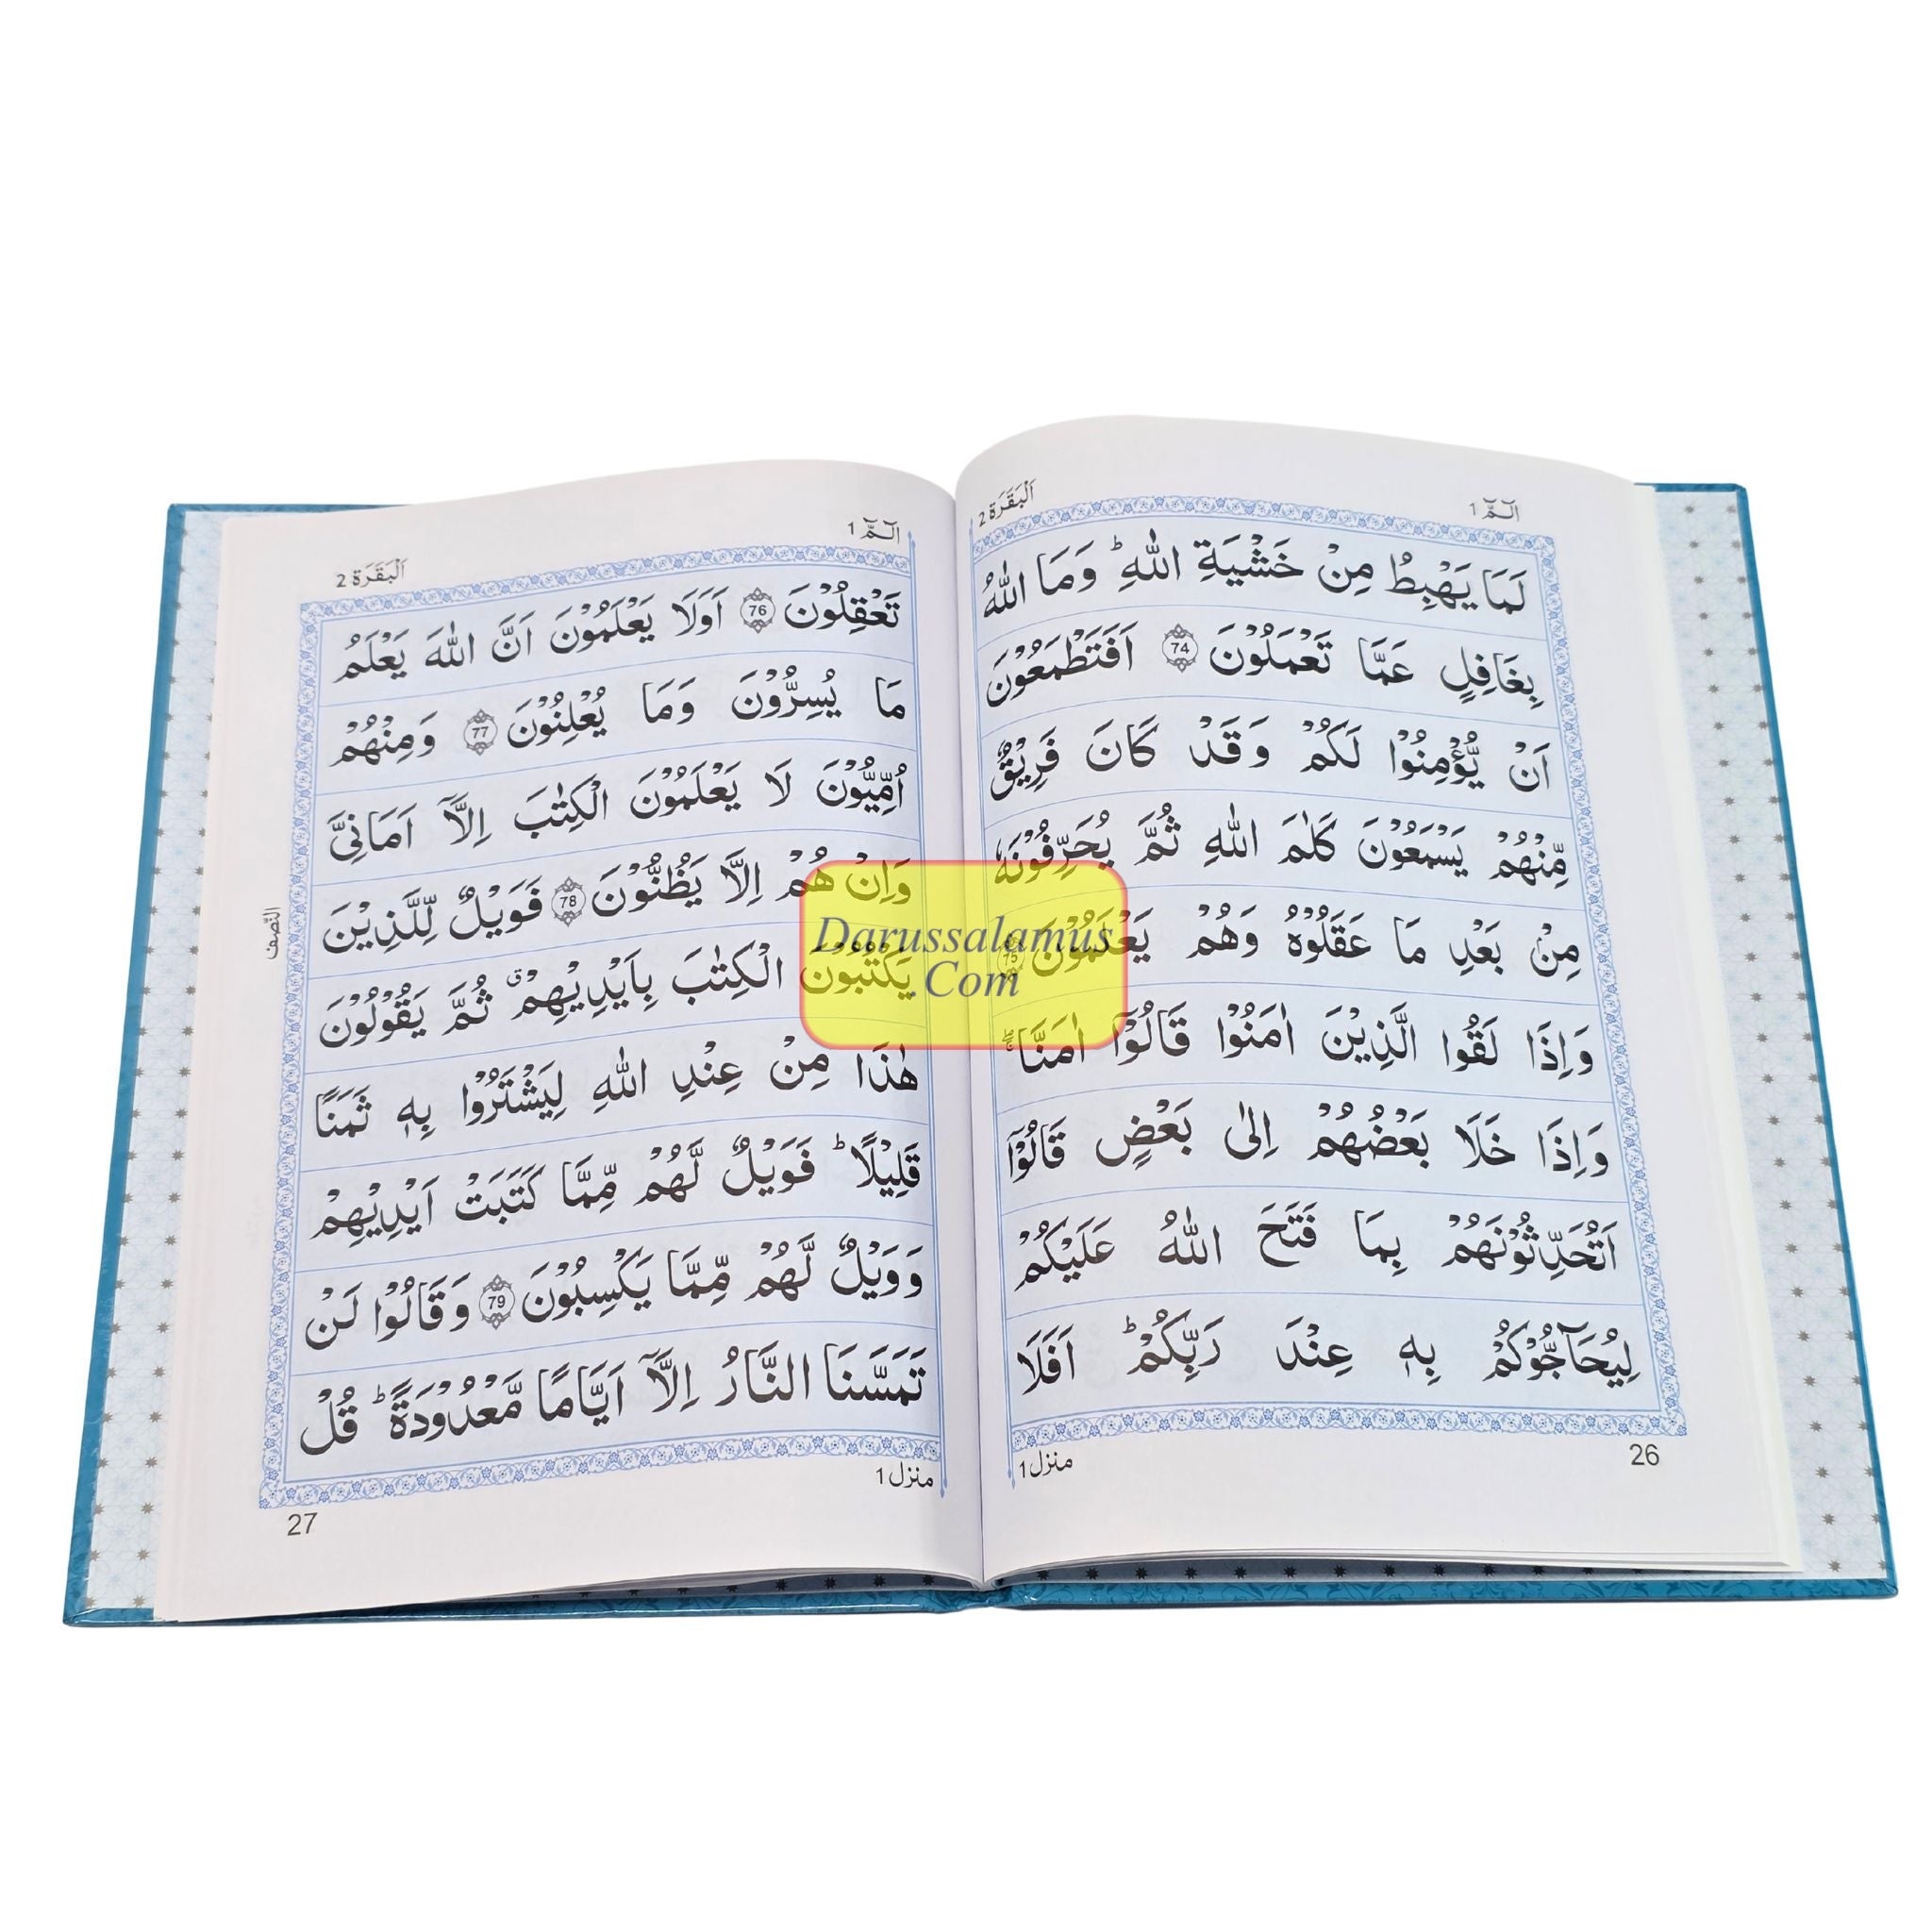 الٓمّٓ 1
اَلْبَقَرَة 2
لَمَا يَهْبِطُ مِنْ خَشْيَةِ اللّٰهِ ؕ وَمَا اللّٰهُ
بِغَافِلٍ عَمَّا تَعْمَلُوْنَ 74 اَفَتَطْمَعُوْنَ
اَنْ يُّؤْمِنُوْا لَكُمْ وَقَدْ كَانَ فَرِيْقٌ
مِّنْهُمْ يَسْمَعُوْنَ كَلٰمَ اللّٰهِ ثُمَّ يُحَرِّفُوْنَهٗ
مِنْ بَعْدِ مَا عَقَلُوْهُ وَهُمْ يَعْلَمُوْنَ 75
وَاِذَا لَقُوا الَّذِيْنَ اٰمَنُوْا قَالُوْٓا اٰمَنَّا ۖۚ
وَاِذَا خَلَا بَعْضُهُمْ اِلٰى بَعْضٍ قَالُوْٓا
اَتُحَدِّثُوْنَهُمْ بِمَا فَتَحَ اللّٰهُ عَلَيْكُمْ
لِيُحَآجُّوْكُمْ بِهٖ عِنْدَ رَبِّكُمْ ؕ اَفَلَا
منزل 1
26
الٓمّٓ 1
اَلْبَقَرَة 2
تَعْقِلُوْنَ 76 اَوَلَا يَعْلَمُوْنَ اَنَّ اللّٰهَ يَعْلَمُ
مَا يُسِرُّوْنَ وَمَا يُعْلِنُوْنَ 77 وَمِنْهُمْ
اُمِّيُّوْنَ لَا يَعْلَمُوْنَ الْكِتٰبَ اِلَّآ اَمَانِىَّ
وَاِنْ هُمْ اِلَّا يَظُنُّوْنَ 78 فَوَيْلٌ لِّلَّذِيْنَ
النّصف
يَكْتُبُوْنَ الْكِتٰبَ بِاَيْدِيْهِمْ ۗ ثُمَّ يَقُوْلُوْنَ
هٰذَا مِنْ عِنْدِ اللّٰهِ لِيَشْتَرُوْا بِهٖ ثَمَنًا
قَلِيْلًا ؕ فَوَيْلٌ لَّهُمْ مِّمَّا كَتَبَتْ اَيْدِيْهِمْ
وَوَيْلٌ لَّهُمْ مِّمَّا يَكْسِبُوْنَ 79 وَقَالُوْا لَنْ
تَمَسَّنَا النَّارُ اِلَّآ اَيَّامًا مَّعْدُوْدَةً ؕ قُلْ
منزل 1
27
Darussalamus
Com